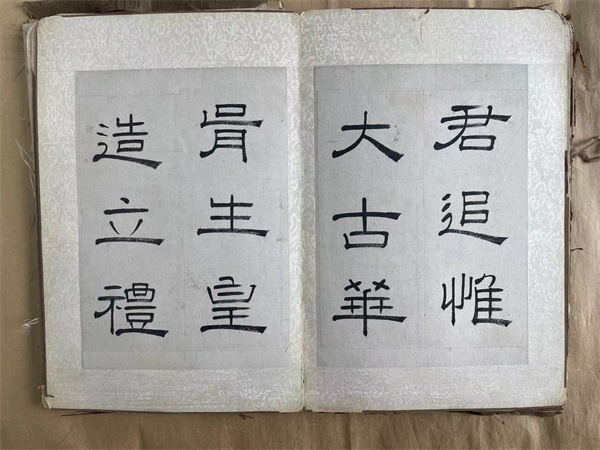 君追惟
大古華
胥生皇
造立禮